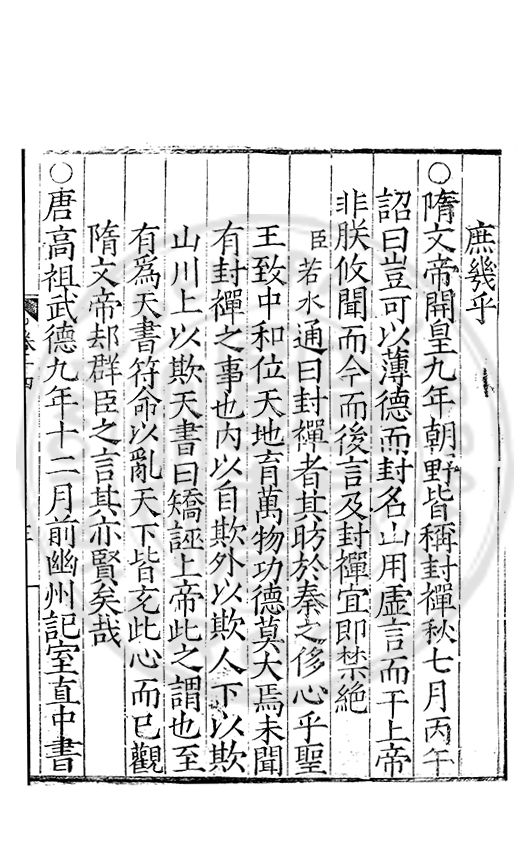 庶幾乎
○隋文帝開皇九年朝野皆稱封禪秋七月丙午
詔曰豈可以薄德而封名山用虛言而干上帝
非朕攸聞而今而後言及封禪宜即禁絶
臣若水通曰封禪者其昉於秦之侈心乎聖
王致中和位天地育萬物功德莫大焉未聞
有封禪之事也內以自欺外以欺人下以欺
山川上以欺天書曰矯誣上帝此之謂也至
有爲天書符命以亂天下皆玄此心而已觀
隋文帝却群臣之言其亦賢矣哉
○唐高祖武德九年十二月前幽州記室直中書